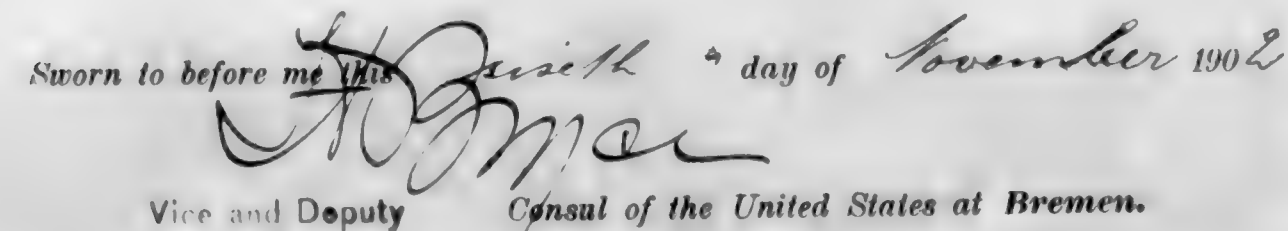 Sworn to before me this day of November 1902
Vice and Deputy Consul of the United States at Bremen.